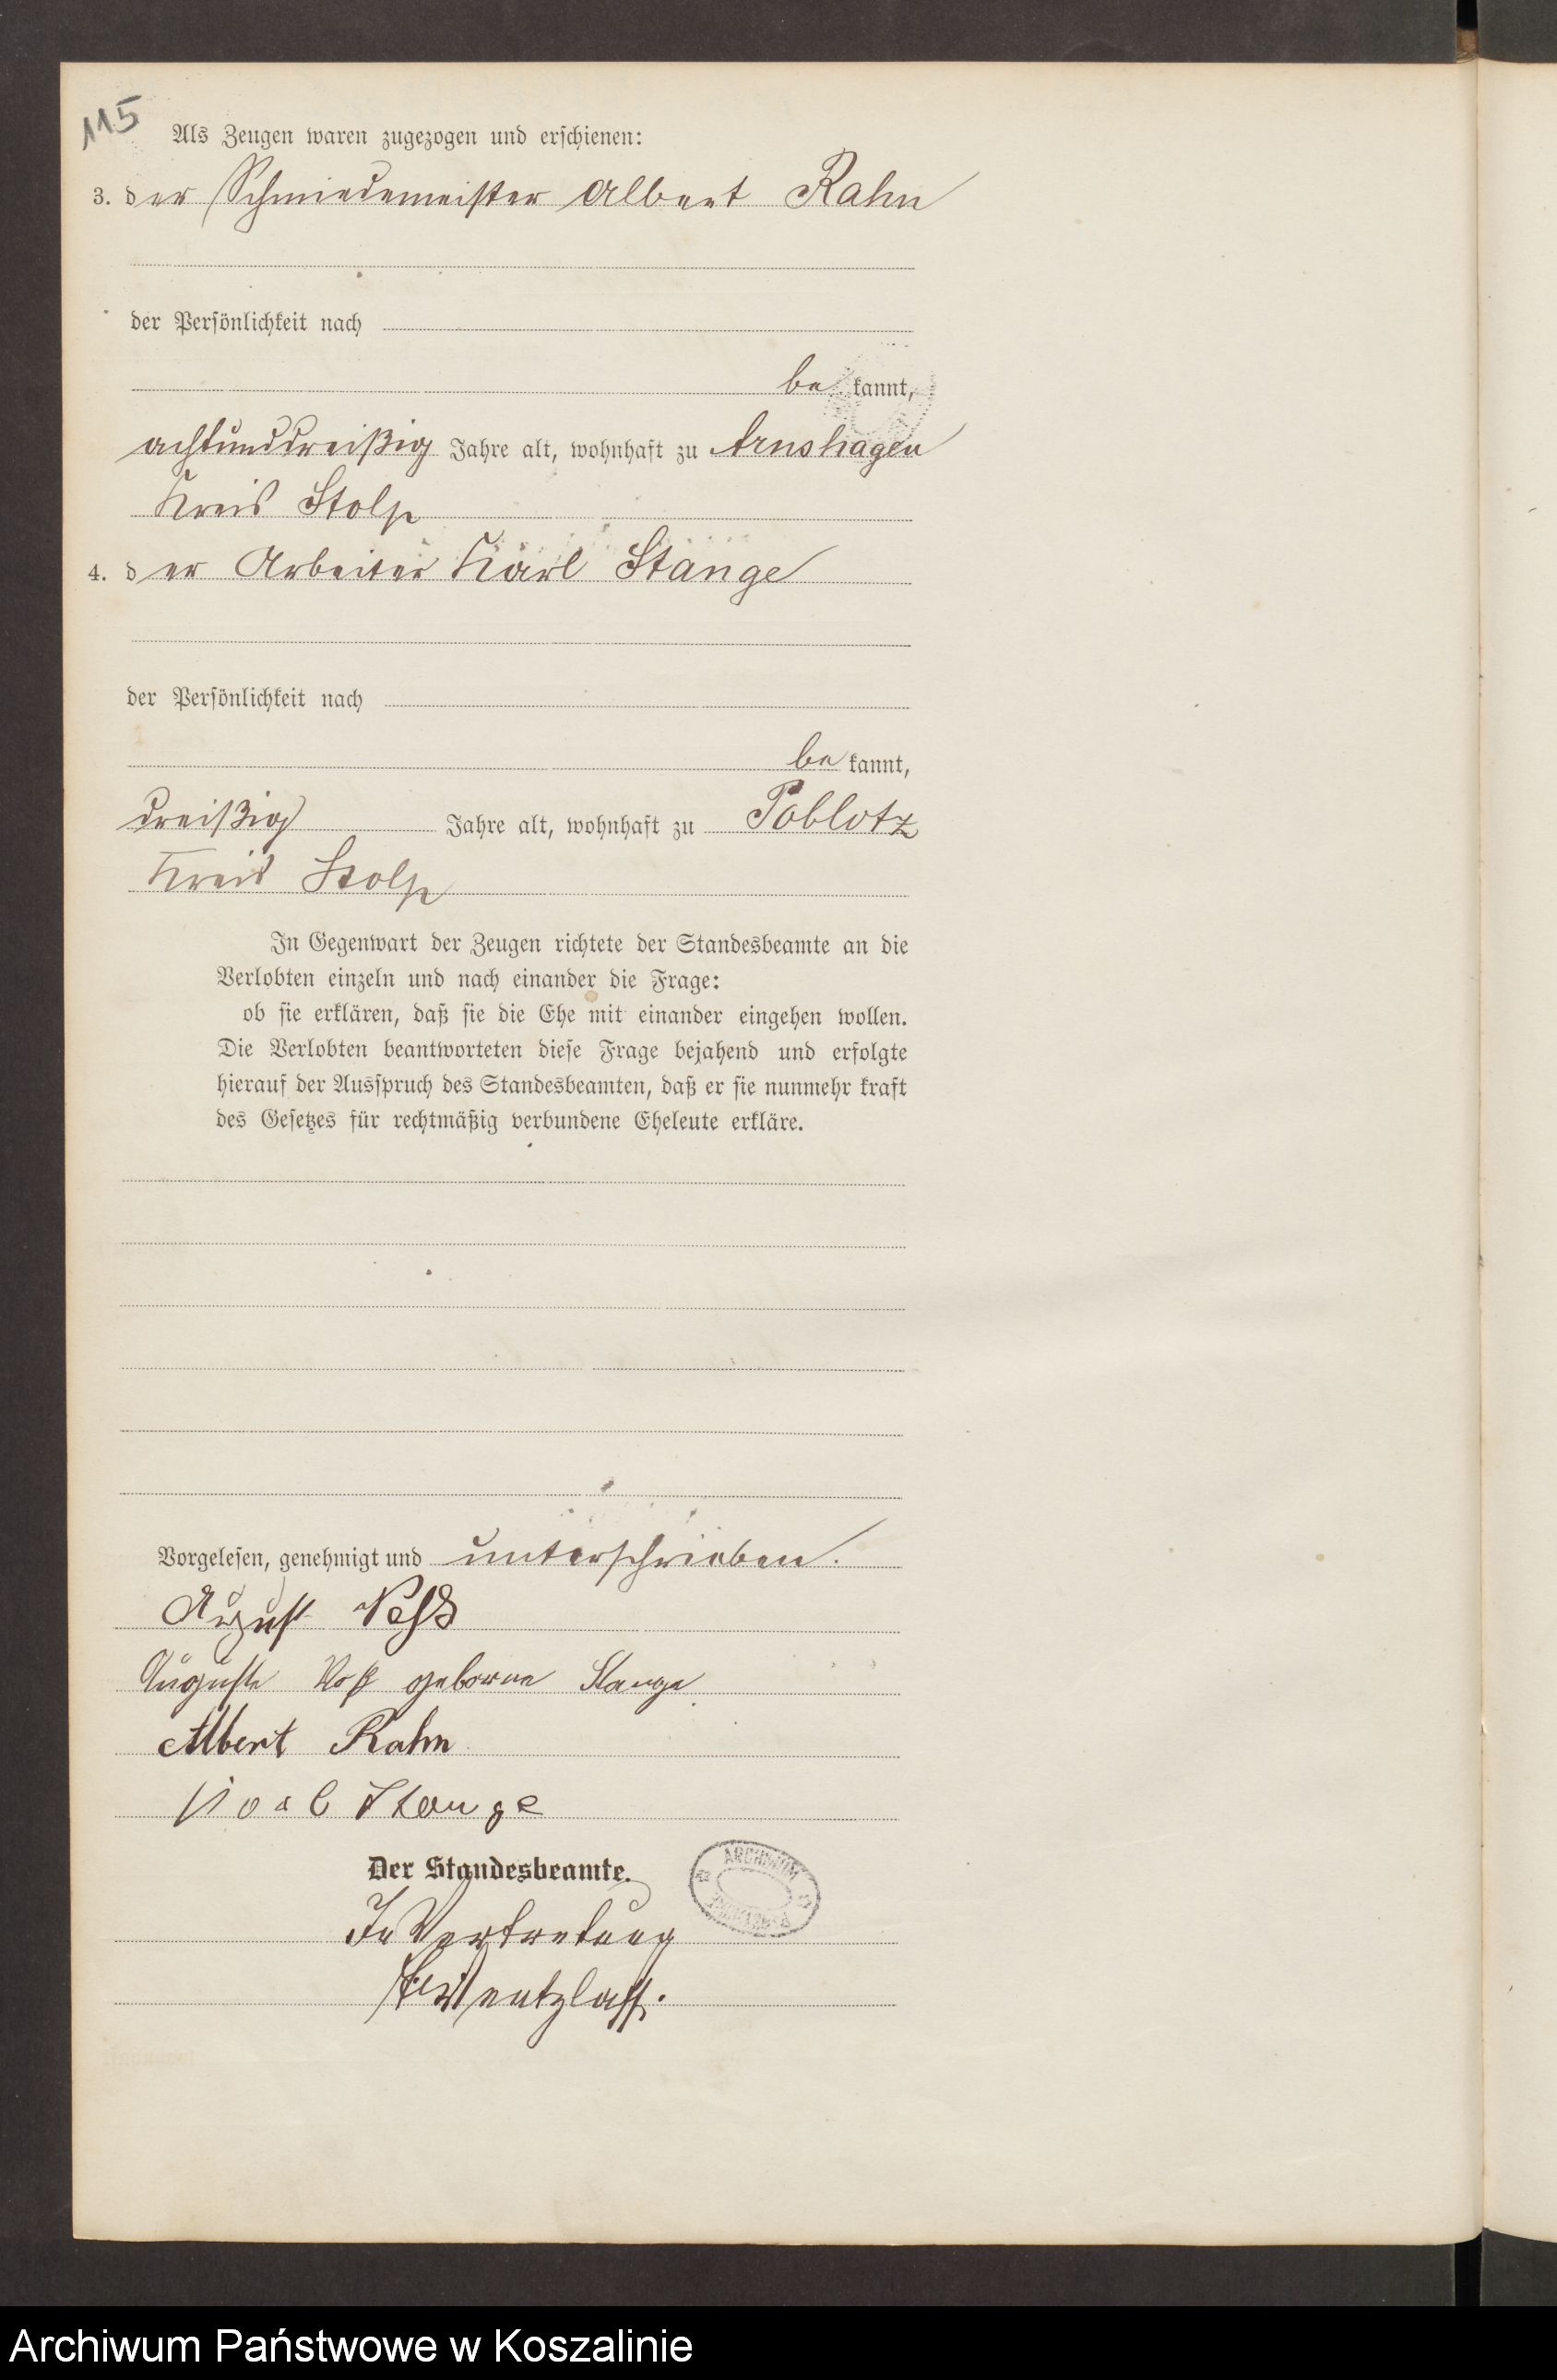 115
Als Zeugen waren zugezogen und erschienen:
3. der Schmiedemeister Albert Rahn
der Persönlichkeit nach
bekannt,
achtunddreißig Jahre alt, wohnhaft zu Arnshagen
Kreis Stolp
4. der Arbeiter Karl Stange
der Persönlichkeit nach
bekannt,
dreißig Jahre alt, wohnhaft zu Poblotz
Kreis Stolp
In Gegenwart der Zeugen richtete der Standesbeamte an die
Verlobten einzeln und nach einander die Frage:
ob sie erklären, daß sie die Ehe mit einander eingehen wollen.
Die Verlobten beantworteten diese Frage bejahend und erfolgte
hierauf der Ausspruch des Standesbeamten, daß er sie nunmehr kraft
des Gesetzes für rechtmäßig verbundene Eheleute erkläre.
Vorgelesen, genehmigt und unterschrieben.
August Voß
Auguste Voß geborne Stange
Albert Rahn
Karl Stange
Der Standesbeamte.
In Vertretung
Wentzlaff.
ARCHIWUM
Archiwum Państwowe w Koszalinie